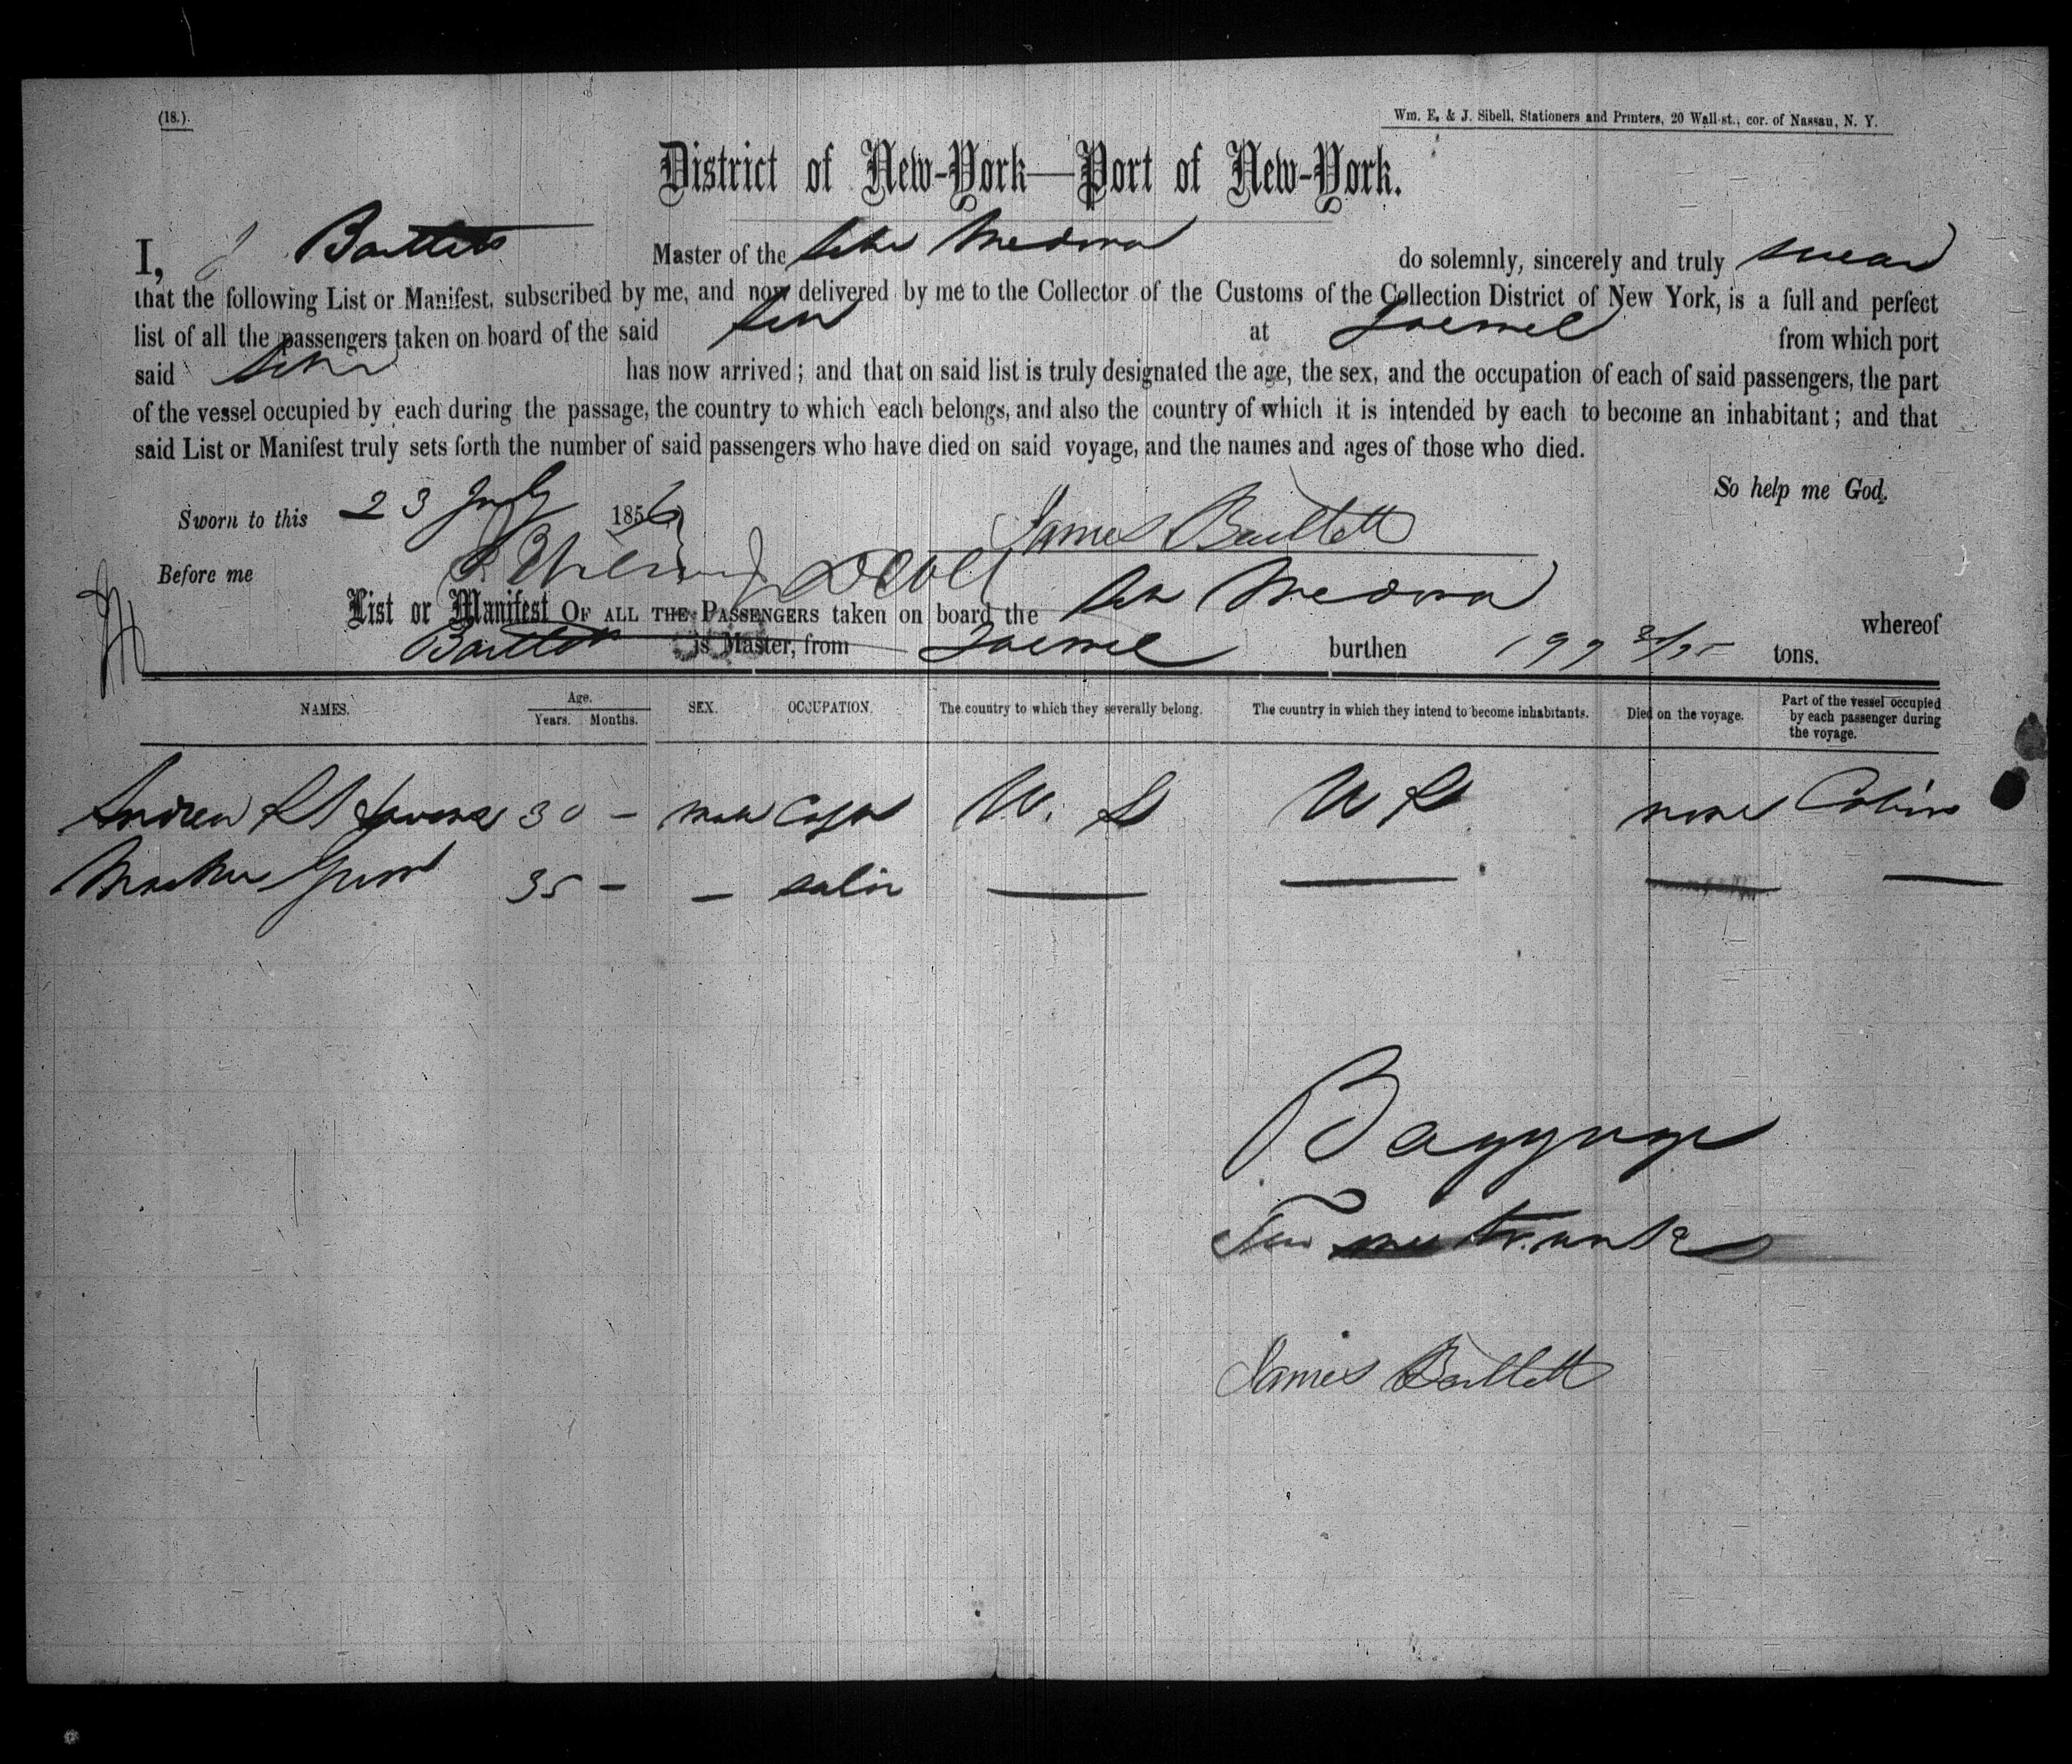 (18.)
Wm. E. & J. Sibell, Stationers and Printers, 20 Wall-st., cor. of Nassau, N. Y.
District of New-York—Port of New-York.
I, J Bartlett Master of the Schr Medora do solemnly, sincerely and truly swear
that the following List or Manifest, subscribed by me, and now delivered by me to the Collector of the Customs of the Collection District of New York, is a full and perfect
list of all the passengers taken on board of the said Schr at Jacmel from which port
said Schr has now arrived; and that on said list is truly designated the age, the sex, and the occupation of each of said passengers, the part
of the vessel occupied by each during the passage, the country to which each belongs, and also the country of which it is intended by each to become an inhabitant; and that
said List or Manifest truly sets forth the number of said passengers who have died on said voyage, and the names and ages of those who died.
So help me God.
Sworn to this 23 July 1856 James Bartlett
Before me
List or Manifest OF ALL THE PASSENGERS taken on board the Schr Medora whereof
Bartlett is Master, from Jacmel burthen tons.
NAMES. Age. Years. Months. SEX. OCCUPATION. The country to which they severally belong. The country in which they intend to become inhabitants. Died on the voyage. Part of the vessel occupied by each passenger during the voyage.
Andrew 30 – male U. S U S none Cabin
35 – –
Baggage
trunks
James Bartlett